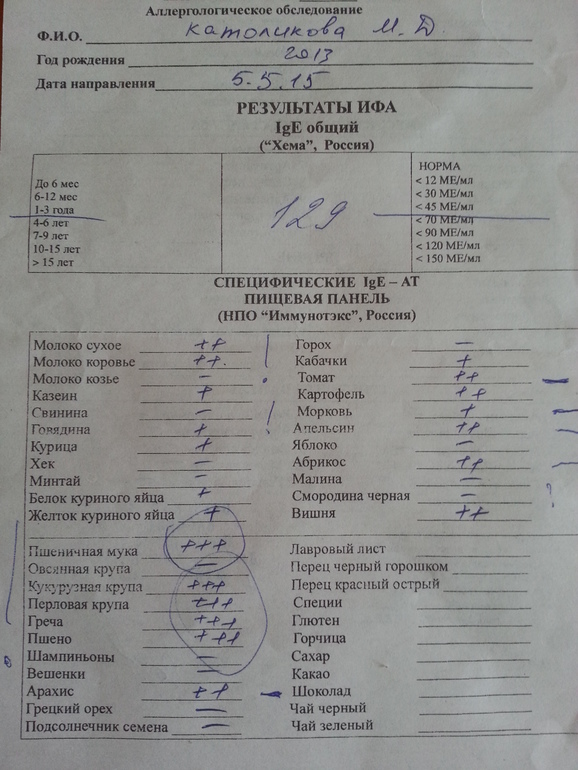 Аллергологическое обследование
Ф.И.О. Католикова М. Д.
Год рождения 2013
Дата направления 5.5.15
РЕЗУЛЬТАТЫ ИФА
IgE общий
("Хема", Россия)
НОРМА
До 6 мес < 12 МЕ/мл
6-12 мес < 30 МЕ/мл
1-3 года < 45 МЕ/мл
129
4-6 лет < 70 МЕ/мл
7-9 лет < 90 МЕ/мл
10-15 лет < 120 МЕ/мл
> 15 лет < 150 МЕ/мл
СПЕЦИФИЧЕСКИЕ IgE – АТ
ПИЩЕВАЯ ПАНЕЛЬ
(НПО "Иммунотэкс", Россия)
Молоко сухое ++ Горох –
Молоко коровье ++ Кабачки +
Молоко козье – Томат ++
Казеин + Картофель ++
Свинина – Морковь +
Говядина + Апельсин ++
Курица + Яблоко –
Хек – Абрикос ++
Минтай – Малина –
Белок куриного яйца + Смородина черная – ?
Желток куриного яйца + Вишня ++
Пшеничная мука +++ Лавровый лист
Овсянная крупа – Перец черный горошком
Кукурузная крупа +++ Перец красный острый
Перловая крупа +++ Специи
Греча +++ Глютен
Пшено +++ Горчица
Шампиньоны – Сахар
Вешенки – Какао
Арахис ++ Шоколад
Грецкий орех – Чай черный
Подсолнечник семена – Чай зеленый